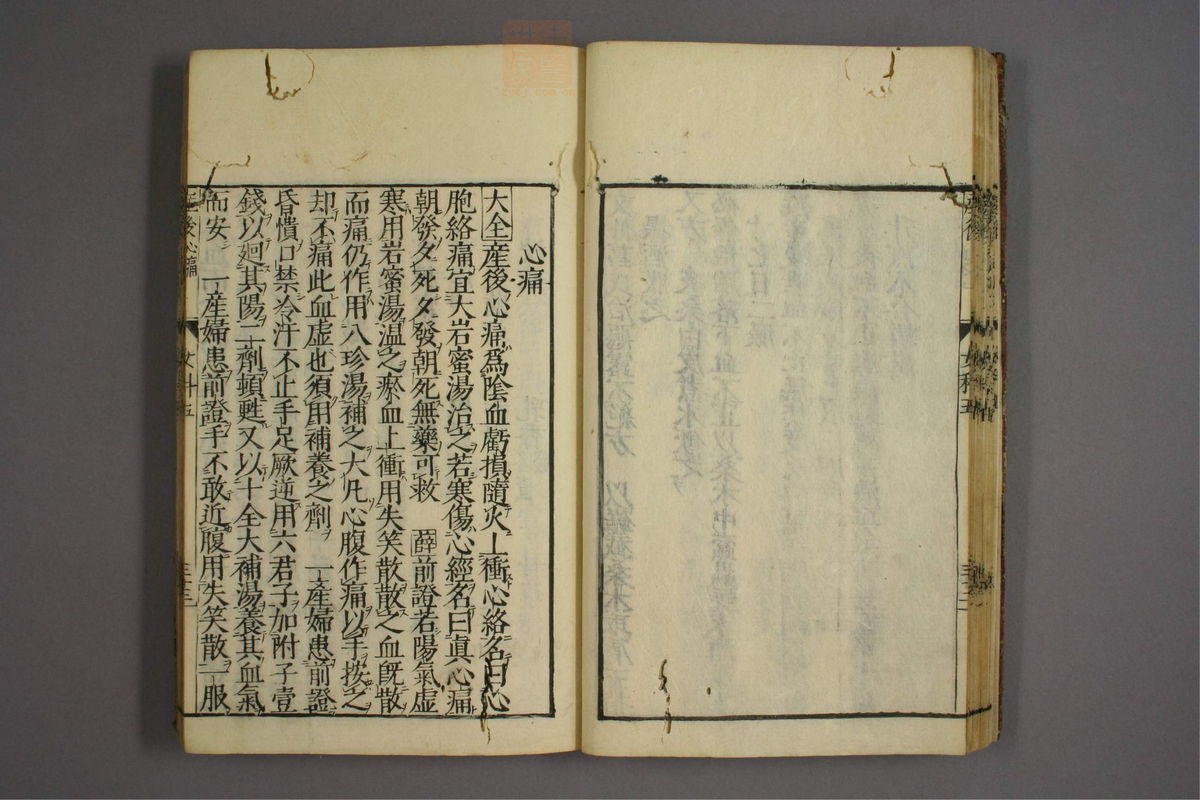 女科五
心痛
大全産後心痛爲陰血虧損隨火上衝心絡名曰心
胞絡痛宜大岩蜜湯治之若寒傷心經名曰眞心痛
朝發夕死夕發朝死無藥可救 薛前證若陽氣虚
寒用岩蜜湯温之瘀血上衝用失笑散散之血既散
而痛仍作用八珍湯補之大凡心腹作痛以手按之
却不痛此血虚也須用補養之劑 一産婦患前證
昏憒口禁冷汗不止手足厥逆用六君子加附子壹
錢以廻其陽二劑頓甦又以十全大補湯養其血氣
而安 一産婦患前證手不敢近腹用失笑散一服
産後心痛 女科五 三十三